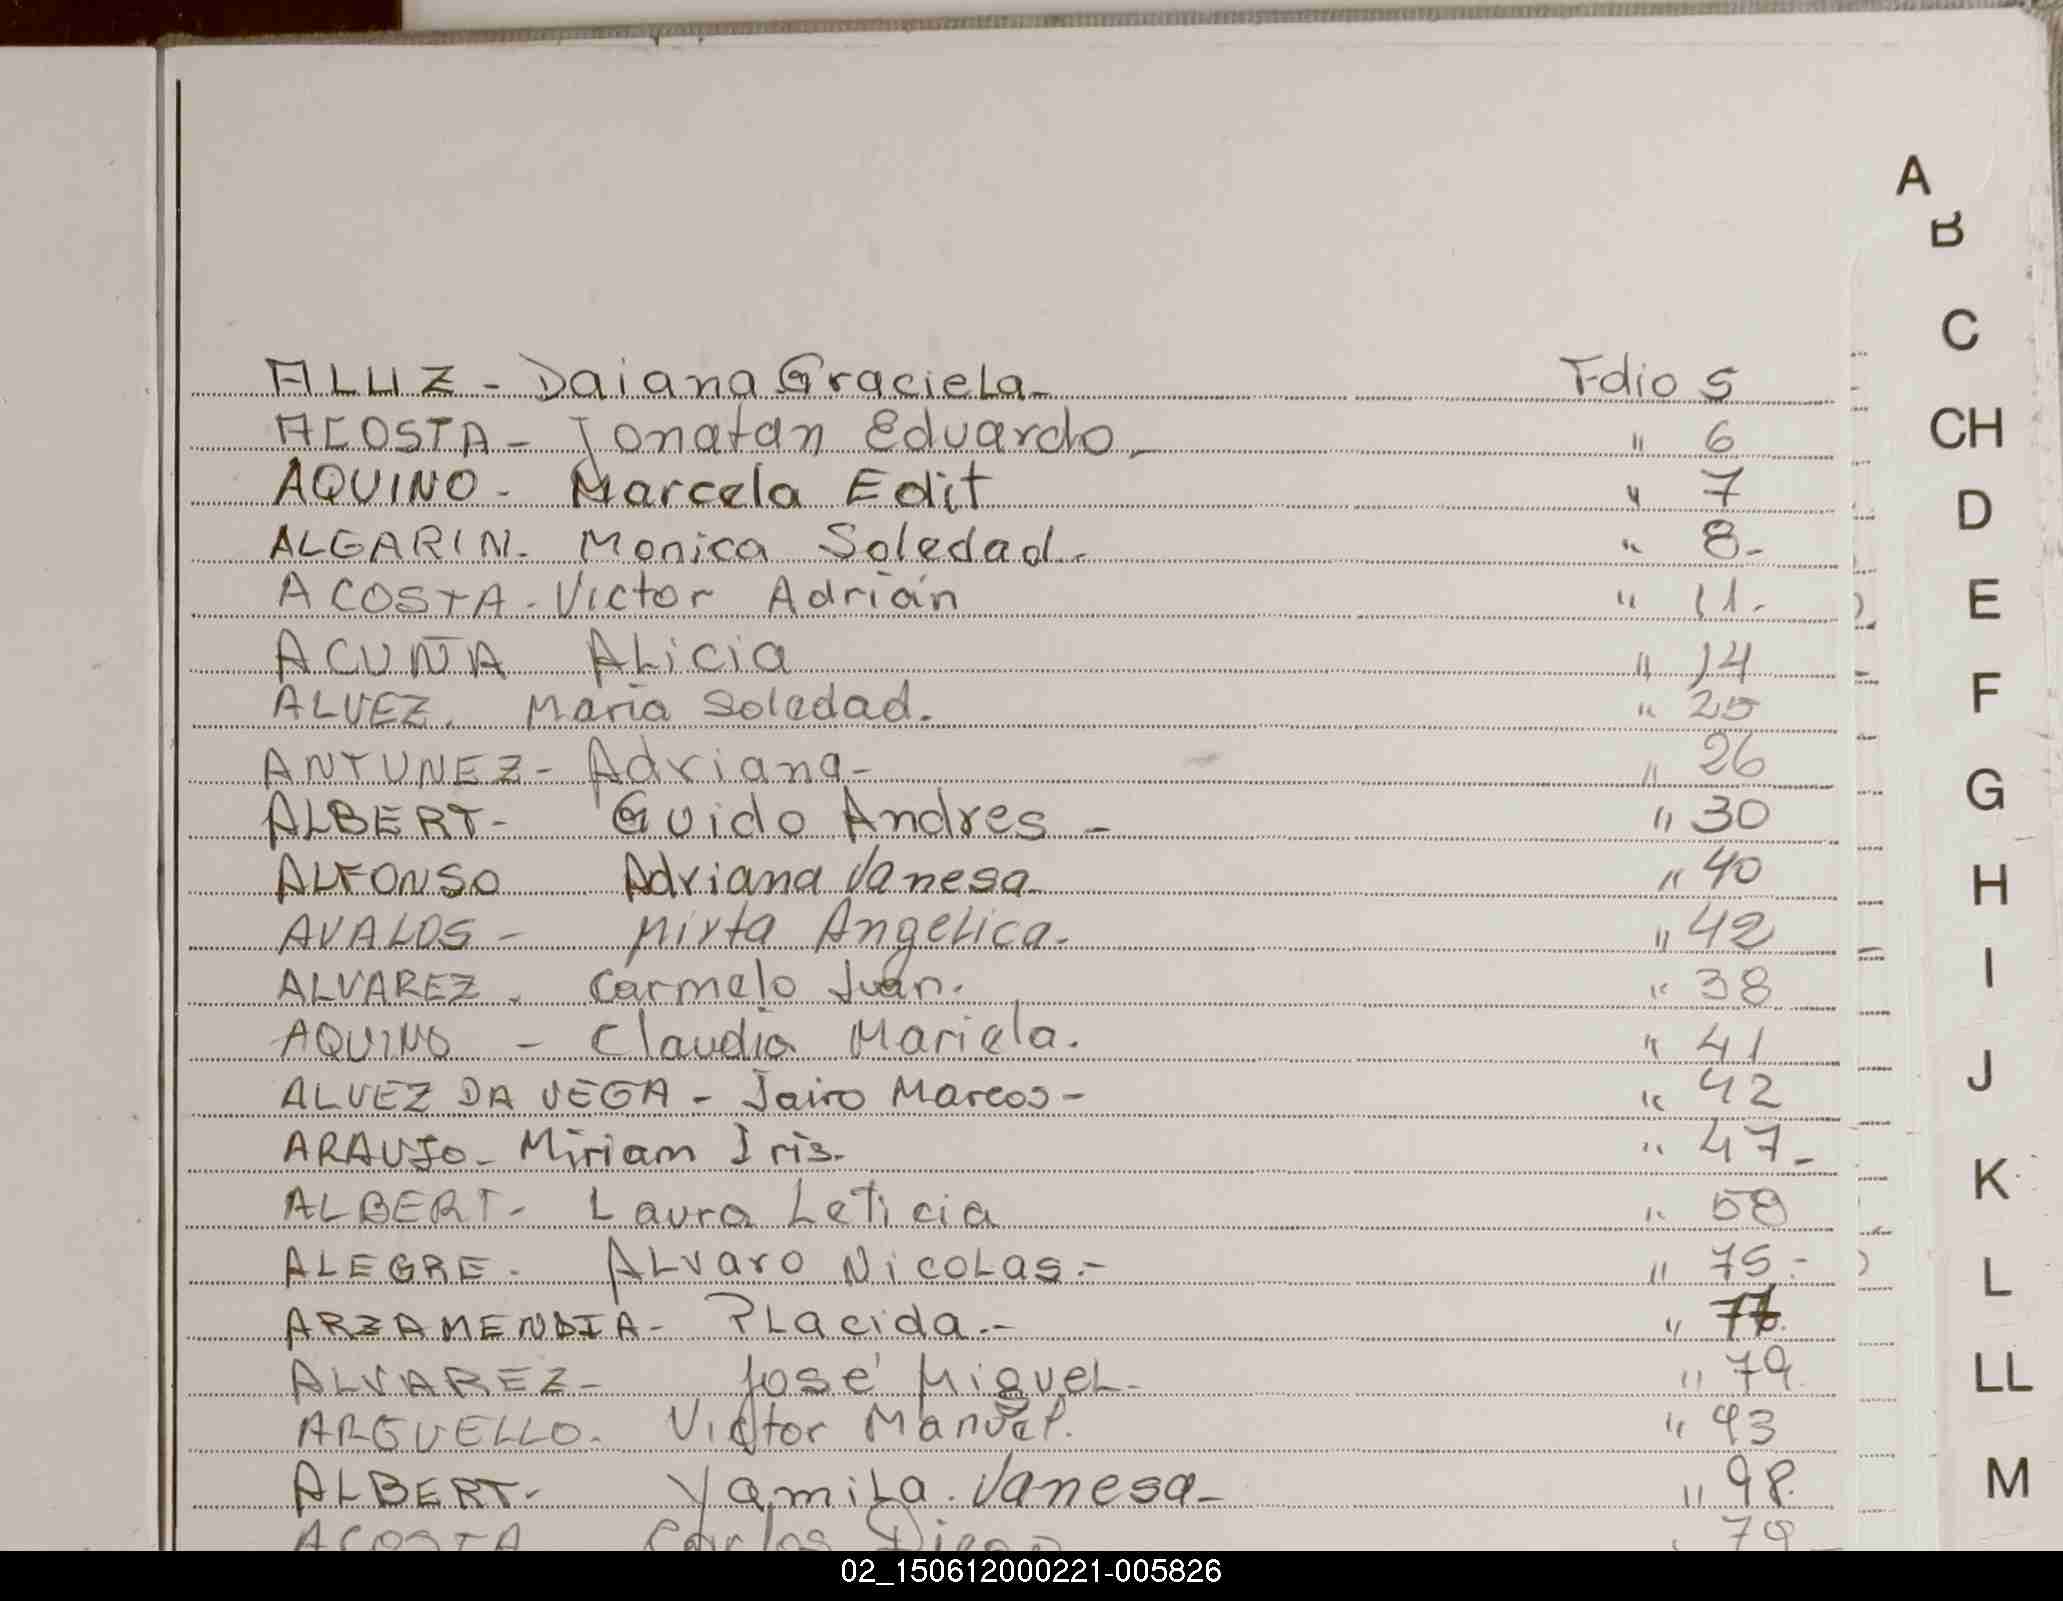 A
B
C
CH
D
E
F
G
H
I
J
K
L
LL
M
ALUZ - Daiana Graciela - Folio 5
ACOSTA - Jonatan Eduardo - " 6
AQUINO - Marcela Edit " 7
ALGARIN - Monica Soledad - " 8 -
ACOSTA - Victor Adrián " 11 -
ACUÑA Alicia " 14
ALVEZ. Maria Soledad. " 25
ANTUNEZ - Adriana - " 26
ALBERT - Guido Andres - " 30
ALFONSO Adriana Vanesa " 40
AVALOS - Mirta Angelica - " 42
ALVAREZ. Carmelo Juan. " 38
AQUINO - Claudia Mariela. " 41
ALVEZ DA VEGA - Jairo Marcos - " 42
ARAUJO - Miriam Iris. " 47 -
ALBERT - Laura Leticia " 58
ALEGRE - Alvaro Nicolas. - " 75 -
ARZAMENDIA - Placida. - "
ALVAREZ - José Miguel - " 79
ARGUELLO. Victor Manuel. " 93
ALBERT - Yamila Vanesa - " 98.
ACOSTA Carlos Diego 79 -
02_150612000221-005826